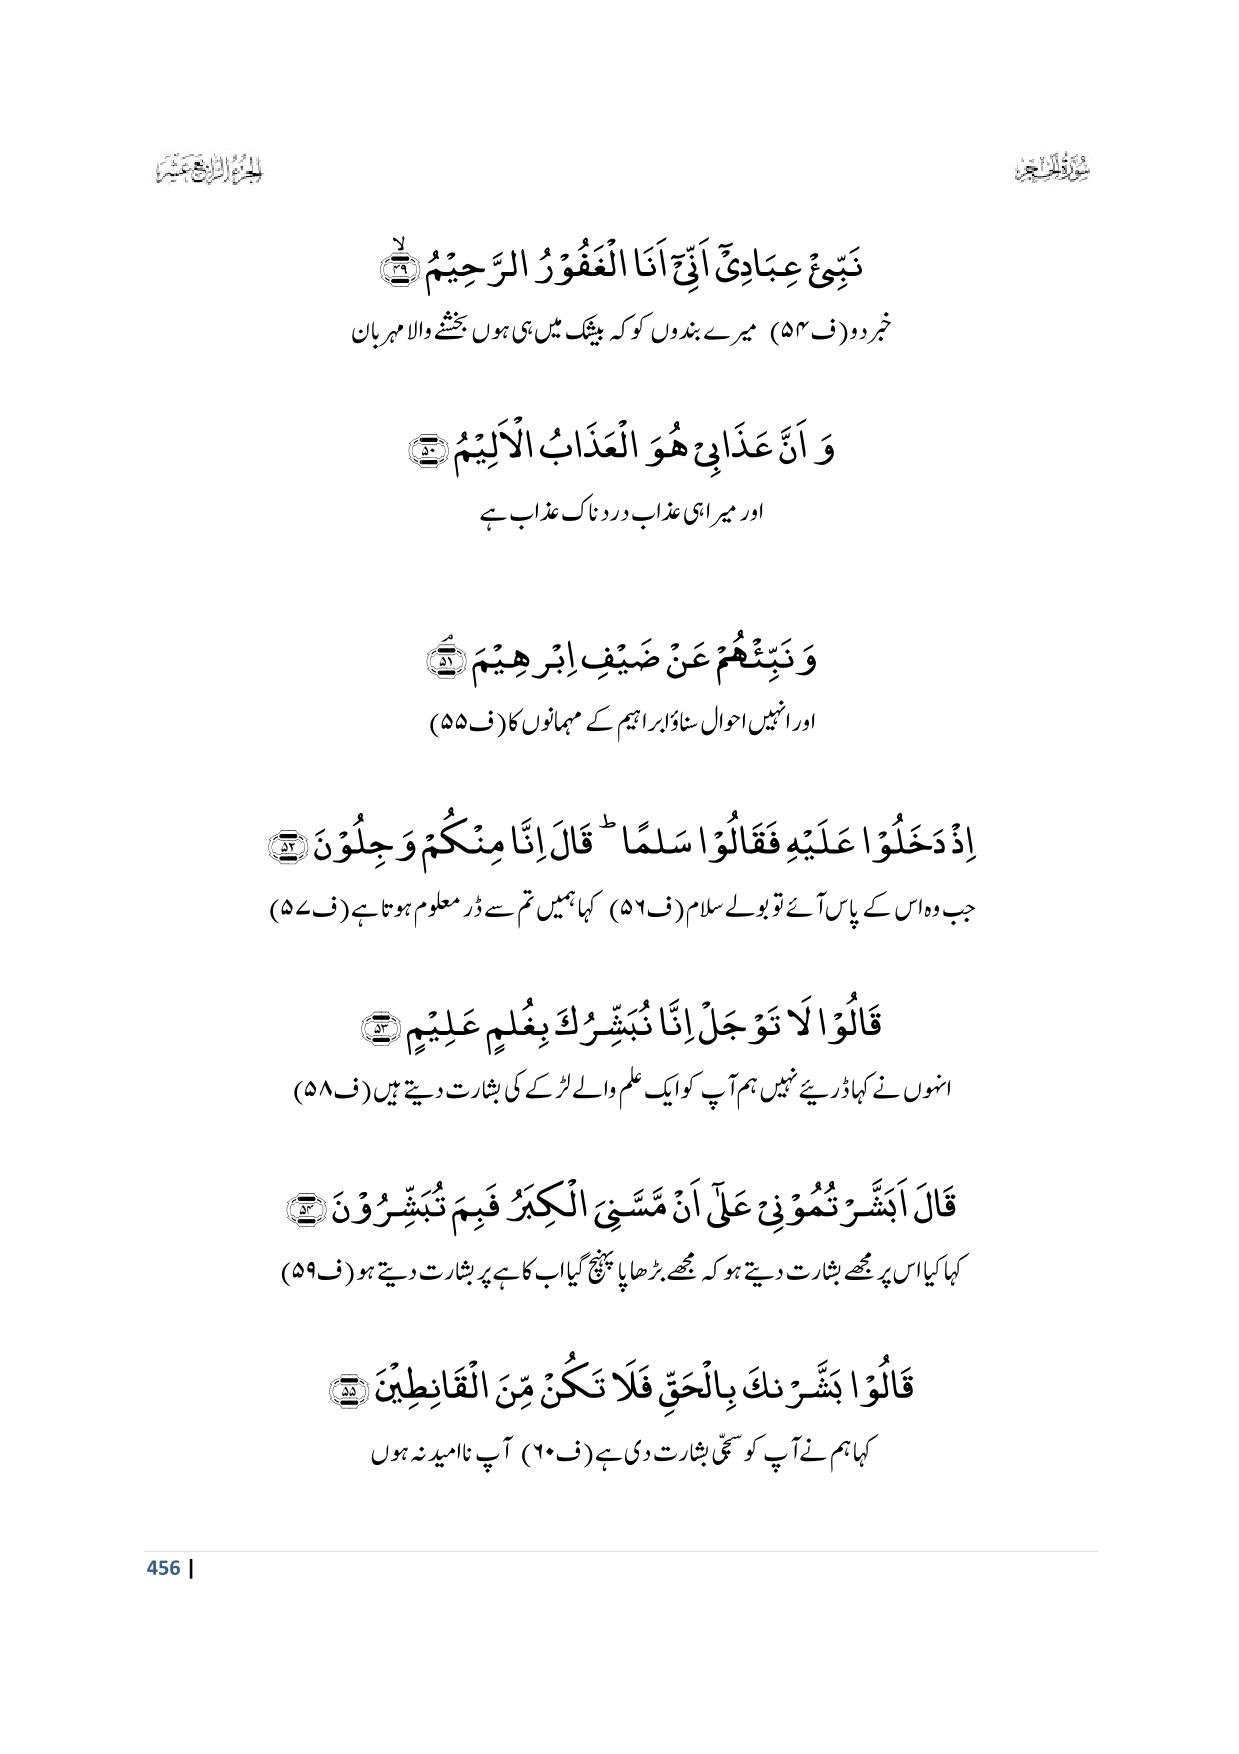 سُوْرَةُ الْحِجْر
الجزء الرابع عشر
نَبِّئْ عِبَادِیْۤ اَنِّیْۤ اَنَا الْغَفُوْرُ الرَّحِیْمُ ﴿ۙ۴۹﴾
خبر دو (ف۵۴) میرے بندوں کو کہ بیشک میں ہی ہوں بخشنے والا مہربان
وَ اَنَّ عَذَابِیْ هُوَ الْعَذَابُ الْاَلِیْمُ ﴿۵۰﴾
اور میرا ہی عذاب دردناک عذاب ہے
وَ نَبِّئْهُمْ عَنْ ضَیْفِ اِبْرٰهِیْمَ ﴿ۘ۵۱﴾
اور انہیں احوال سناؤ ابراہیم کے مہمانوں کا (ف۵۵)
اِذْ دَخَلُوْا عَلَیْهِ فَقَالُوْا سَلٰمًا ؕ قَالَ اِنَّا مِنْكُمْ وَجِلُوْنَ ﴿۵۲﴾
جب وہ اس کے پاس آئے تو بولے سلام (ف۵۶) کہا ہمیں تم سے ڈر معلوم ہوتا ہے (ف۵۷)
قَالُوْا لَا تَوْجَلْ اِنَّا نُبَشِّرُكَ بِغُلٰمٍ عَلِیْمٍ ﴿۵۳﴾
انہوں نے کہا ڈریئے نہیں ہم آپ کو ایک علم والے لڑکے کی بشارت دیتے ہیں (ف۵۸)
قَالَ اَبَشَّرْتُمُوْنِیْ عَلٰۤی اَنْ مَّسَّنِیَ الْكِبَرُ فَبِمَ تُبَشِّرُوْنَ ﴿۵۴﴾
کہا کیا اس پر مجھے بشارت دیتے ہو کہ مجھے بڑھاپا پہنچ گیا اب کاہے پر بشارت دیتے ہو (ف۵۹)
قَالُوْا بَشَّرْنٰكَ بِالْحَقِّ فَلَا تَكُنْ مِّنَ الْقَانِطِیْنَ ﴿۵۵﴾
کہا ہم نے آپ کو سچی بشارت دی ہے (ف۶۰) آپ ناامید نہ ہوں
456 |